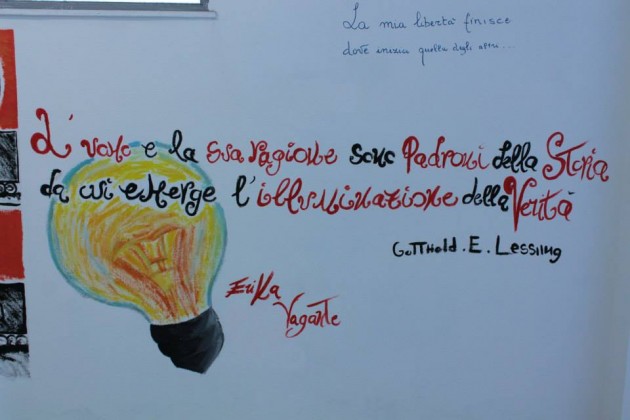 La mia libertà finisce
dove inizia quella degli altri...
L'uomo e la sua ragione sono Padroni della Storia
da cui emerge l'illuminazione della Verità
Gotthold. E. Lessiing
Erika
Vagante